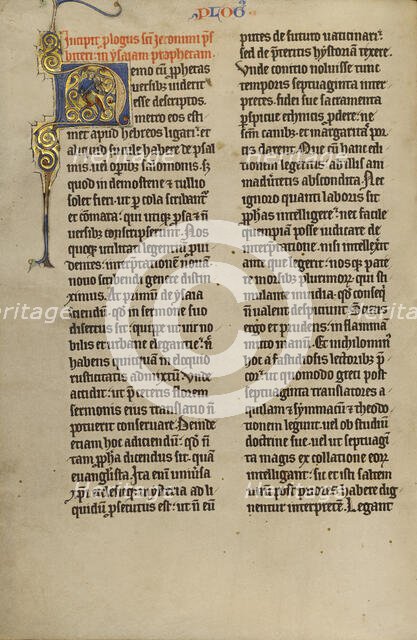 PLOG'
Incipit plogus sci Jeronimi p̄s
biteri in ysayam propheram.
Nemo cū prophetas
uersib; uiderit
esse descriptos.
metro eos esti
met apud hebreos ligari: et
aliquid simile habere de psal
mis. uel opib; salomonis. sz
quod in demostene et tullio
solet fieri ut p cola scribant
et comata: qui utiq; psa et n̄
uersib; conscripserunt. Nos
quoq; utilitati legentiū pui
dentes: interptationē nouā
nouo scribendi genere distin
ximus. Ac primū de ysaia
sciendū qd in sermone suo
disertus sit: quippe ut uir no
bilis et urbane elegantie: n̄
habens quicquā in eloquio
rusticitatis admixtū. Unde
accidit: ut p̄ ceteris florem
sermonis eius translatio n̄
potuerit conseruare. Deinde
etiam hoc adiciendū: qd n̄
tam ppha dicendus sit: quā
euanglista. Ita enī uniuersa
xp̄i ecclesieq; mysteria ad li
quidū psecutus est: ut n̄ eū
putes de futuro uaticinari:
sed de pteritis hystoriam texere.
Unde conitio noluisse tunc
temporis septuaginta inter
pretes: fidei sue sacramenta
pspicue ethnicis pdere: ne
scm̄ canib; et margaritas por
cis darent. Que cū hanc edi
tionem legeritis: ab illis ani
maduertetis abscondita. Nec
ignoro quanti laboris sit
pphas intelligere: nec facile
quempiam posse iudicare de
interptatione: nisi intellexit
ante que legerit: nosq; pate
re morsib; plurimor: qui sti
mulante inuidia: qd conseq
n̄ ualent despiciunt. Sciens
ergo et prudens: in flammā
mitto manū. Et nichilomin
hoc a fastidiosis lectorib; p
cor: ut quomodo greci post
septuaginta translatores a
quilam et symmacū et theodo
tionem legunt: uel ob studiū
doctrine sue: uel ut septuagi
ta magis ex collatione eor
intelligant: sic et isti saltem
unū post priores habere dig
nentur interpretē. Legant